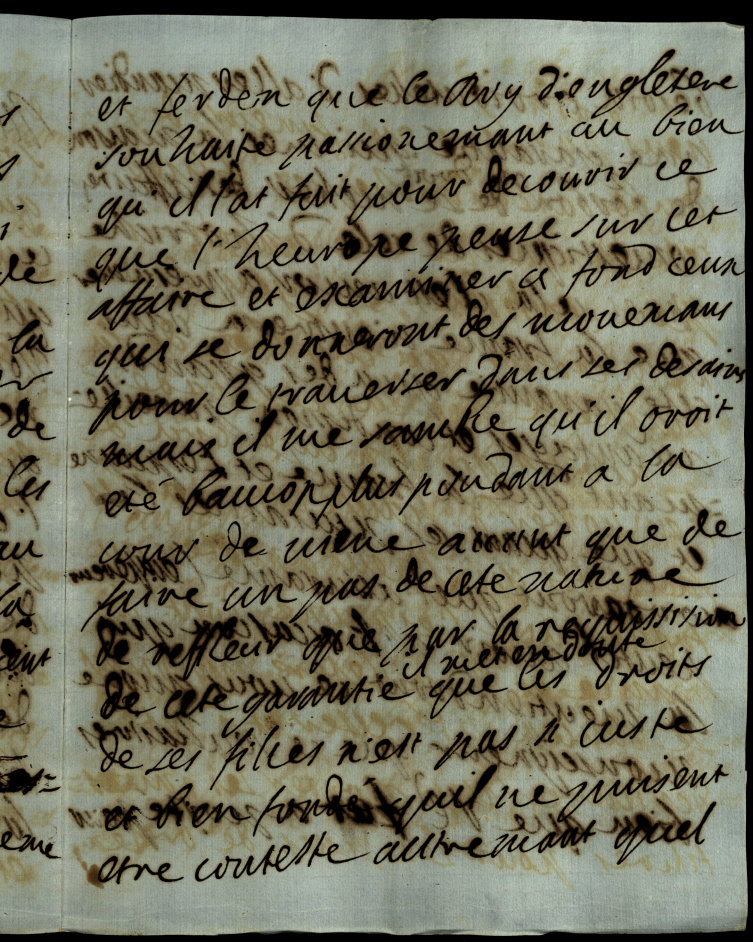 et ferden que le Roy d'engletere
souhaite passionemant au bien
qu il l'at fait pour decouvrir ce
que l'heurope pense sur cet
affaire et examiner a fond ceux
qui se donneront des mouemans
pour le traverser dans ses desains
mais il me samble qu'il avoit
eté baucöp plus prudant a la
cour de viene avant que de
faire un pas de cete nature
de refflecir que par la requissision
de cete garantie il met en doute que les droits
de ses filies n'est pas si juste
et bien fondé quil ne puisent
etre conteste autremant quel
s
s
de
la
de
les
au
la
cent
e
eme